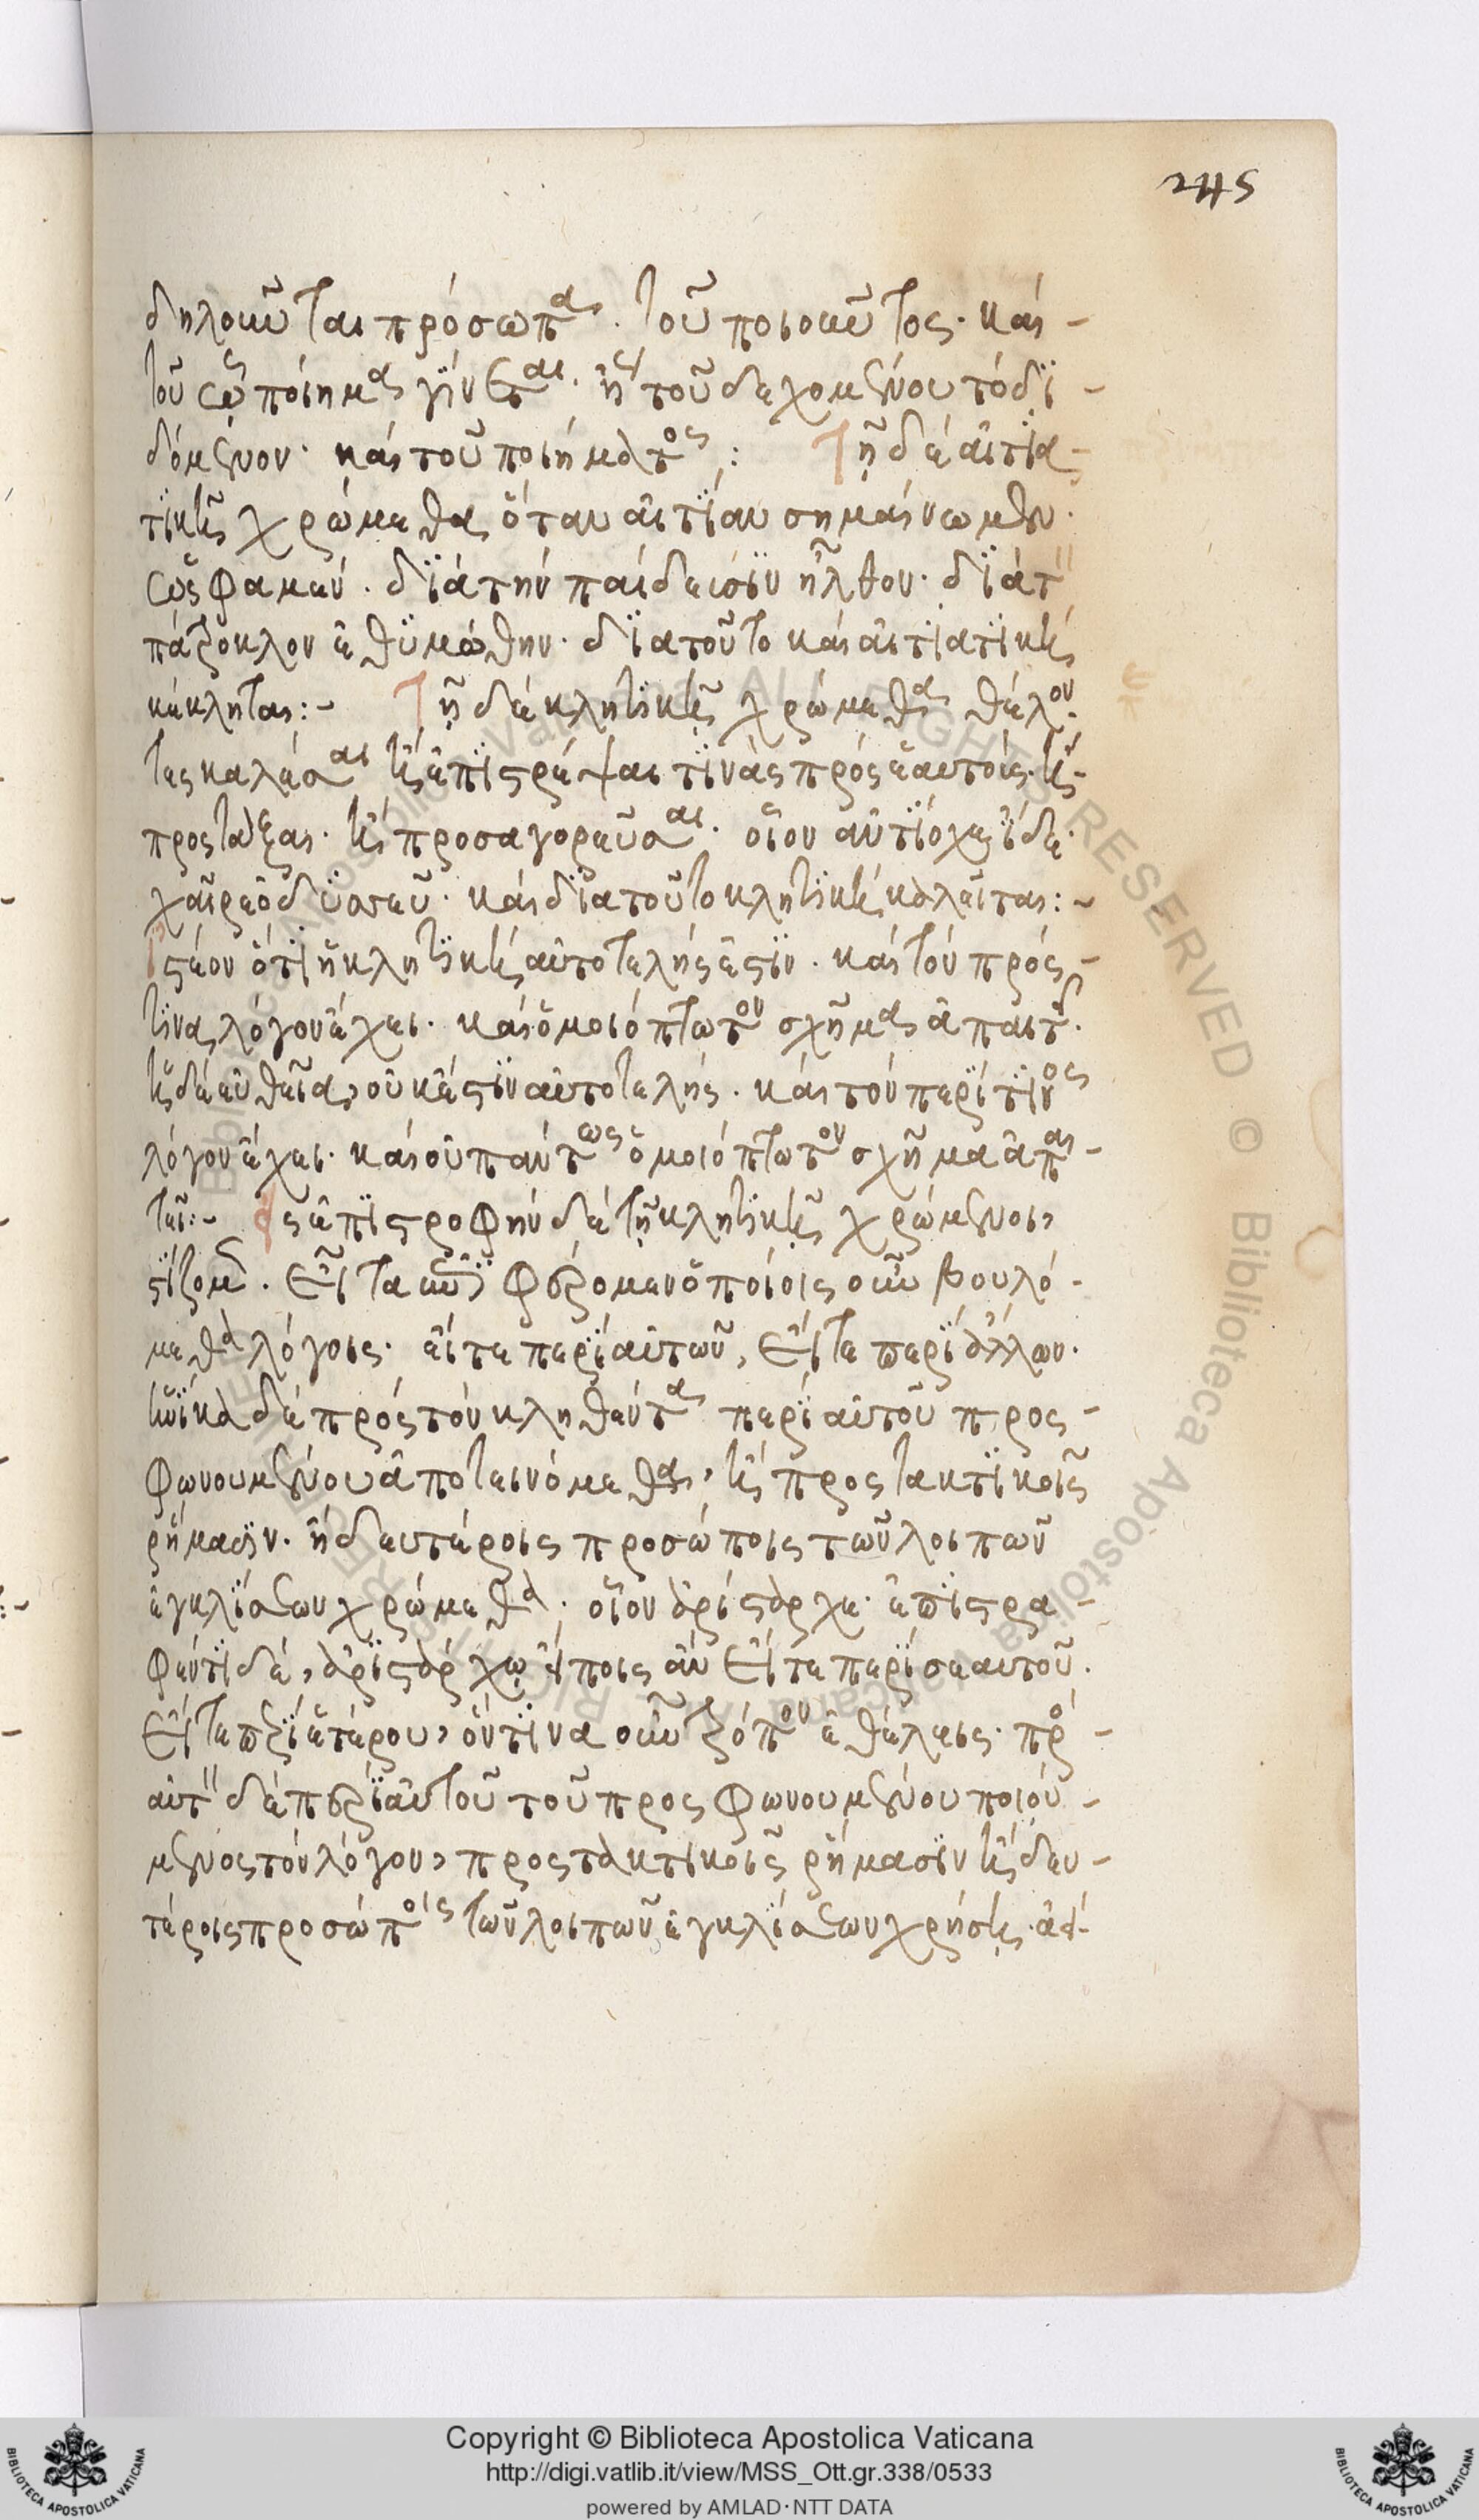 245
δηλοῦνται πρόσωπα. τοῦ ποιοῦντος. καὶ
τοῦ ᾧ ποίημα γίνεται. ἢ τοῦ δεχομένου τὸ δι-
δόμενον. καὶ τοῦ ποιήματος: Τῇ δὲ αἰτια-
τικῇ χρώμεθα ὅταν αἰτίαν σημαίνωμεν.
ὡς φαμέν. διὰ τὴν παίδευσιν ἦλθον. διὰ τ
πάτροκλον ἐθυμώθην. διατοῦτο καὶ αἰτιατικὴ
κέκληται:- Τῇ δὲ κλητικῇ χρώμεθα θέλον
τες καλέσαι καὶ ἐπιστρέψαι τινὰς πρὸς ἑαυτούς. καὶ
προστάξαι. καὶ προσαγορεῦσαι. οἷον ἀντίοχε ἴδε.
χαῖρε ὀδυσσεῦ. καὶ διατοῦτο κλητικὴ καλεῖται:-
Ἰστέον ὅτι ἡ κλητικὴ αὐτοτελής ἐστιν. καὶ τὸν πρός
τινα λόγον ἔχει. καὶ ὁμοιόπτωτον σχῆμα ἀπαιτεῖ.
ἡ δὲ εὐθεῖα, οὐκ ἔστιν αὐτοτελής. καὶ τὸν περί τινος
λόγον ἔχει. καὶ οὐ πάντως ὁμοιόπτωτον σχῆμα ἀπαι-
τεῖ:- εἰς ἐπιστροφὴν δὲ τῇ κλητικῇ χρώμενοι,
στίζομεν. εἶτα οὖν φέρομεν ὁποίοις οὖν βουλό-
μεθα λόγοις. εἴτε περὶ αὐτῶν, εἴτε περὶ ἄλλων.
ἡνίκα δὲ πρὸς τὸν κληθέντα περὶ αὐτοῦ προσ-
φωνουμένου ἀποτεινόμεθα, καὶ προστακτικοῖς
ῥήμασιν. ἢ δευτέροις προσώποις τῶν λοιπῶν
ἐγκλίσεων χρώμεθα. οἷον ἀρίσταρχε. ἐπιστρα-
φέντι δὲ, ἀριστάρχῳ εἴποις ἂν εἴτε περὶ σεαυτοῦ.
εἴτε περὶ ἑτέρου, ὅντινα οὖν τρόπον ἐθέλεις. πρὸ-
αὐτ δὲ περὶ αὐτοῦ τοῦ προσφωνουμένου ποιού-
μενος τὸν λόγον, προστακτικοῖς ῥήμασιν καὶ δευ-
τέροις προσώποις τῶν λοιπῶν ἐγκλίσεων χρήσῃ.
Copyright © Biblioteca Apostolica Vaticana
http://digi.vatlib.it/view/MSS_Ott.gr.338/0533
powered by AMLAD·NTT DATA